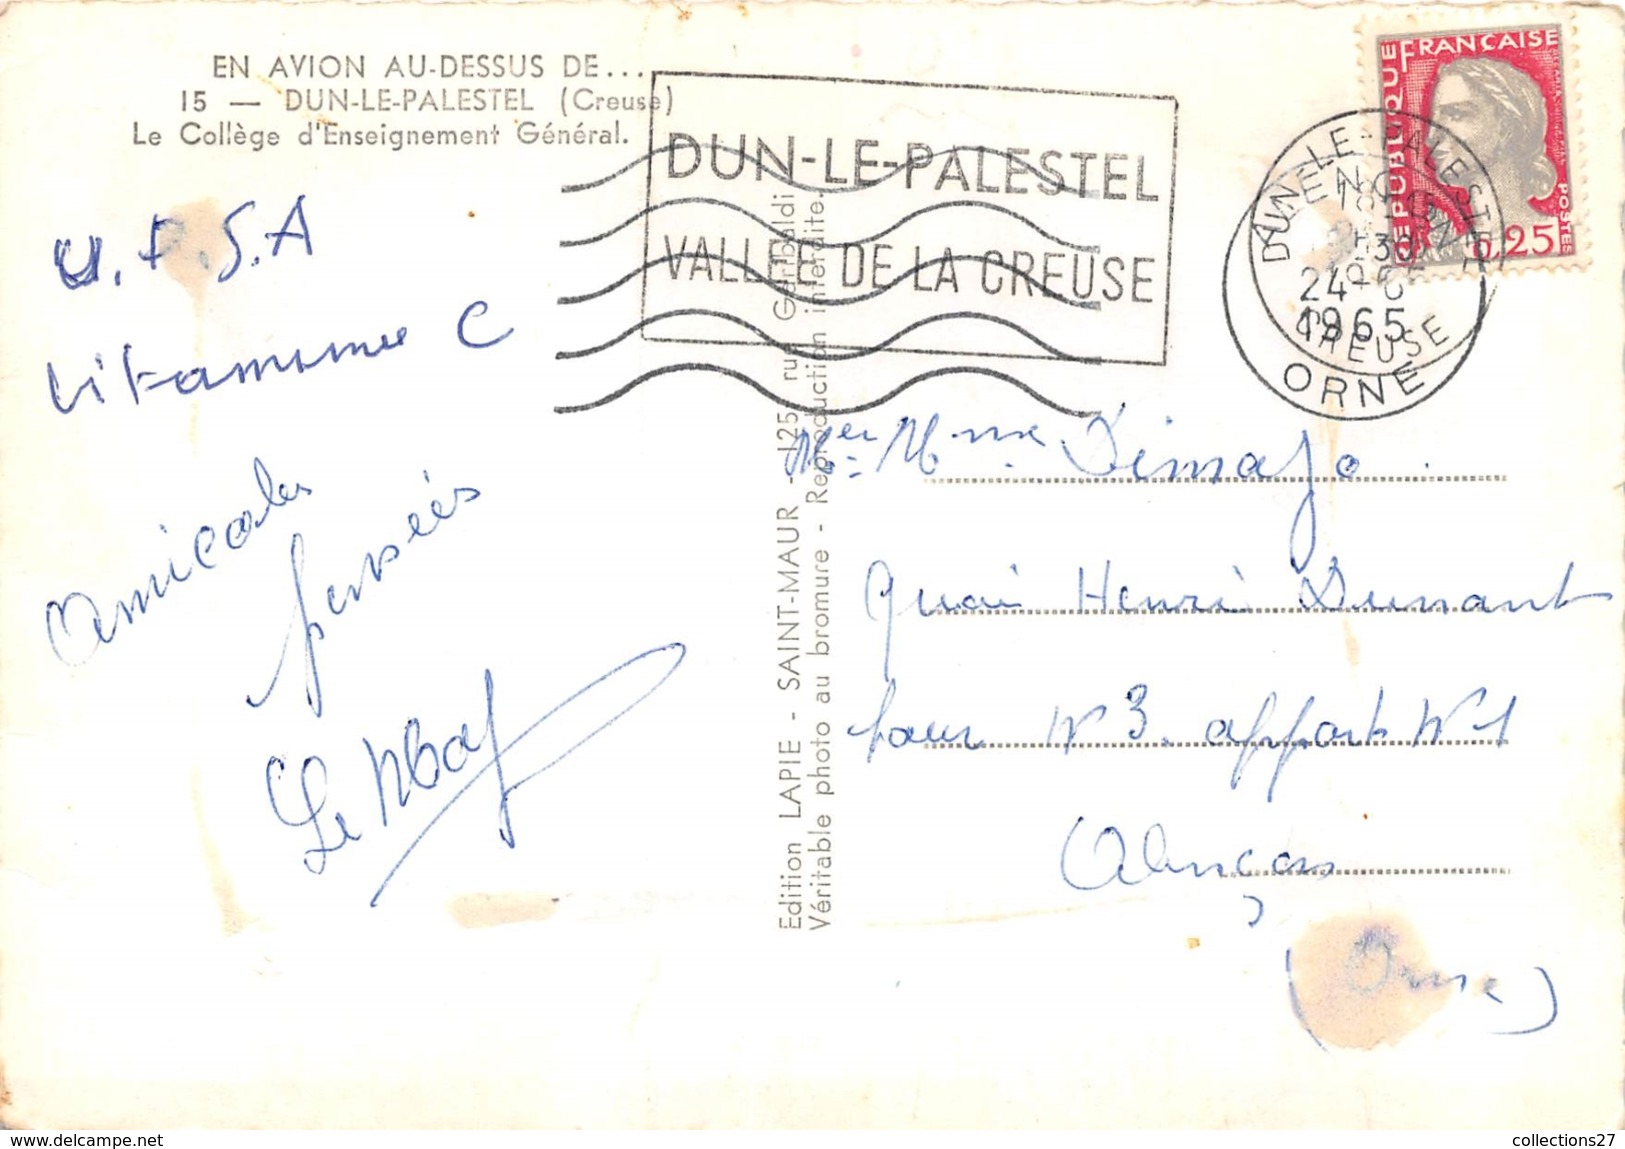 EN AVION AU-DESSUS DE...
15 — DUN-LE-PALESTEL (Creuse)
Le Collège d'Enseignement Général.
DUN-LE-PALESTEL
VALLÉE DE LA CREUSE
RÉPUBLIQUE FRANÇAISE
0,25
POSTES
DUN-LE-PALESTEL
CREUSE
ALENÇON
24
1965
ORNE
U.P.S.A
Vitamine C
Amicales
pensées
Edition LAPIE - SAINT-MAUR - 125 rue Garibaldi
Véritable photo au bromure - Reproduction interdite.
Mr et Mme
Quai Henri Dunant
Tour N° 3. appart N° 1
Alençon
(Orne)
collections27
www.delcampe.net